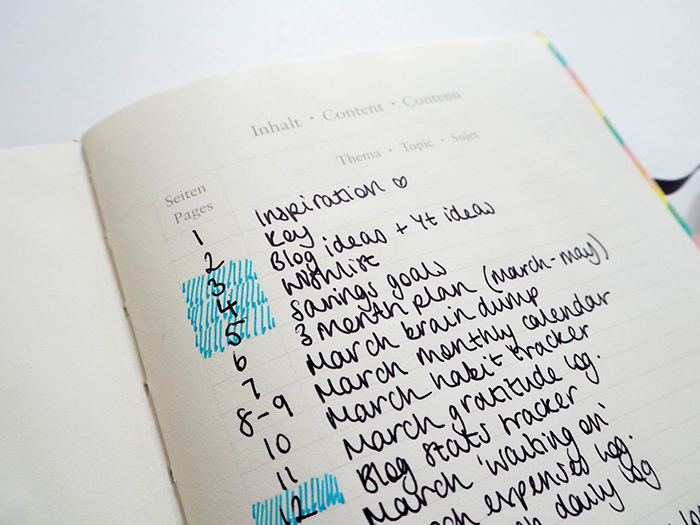 Inhalt · Content · Contenu
Seiten Pages
Thema · Topic · Sujet
1 Inspiration ♡
2 Key
3 Blog ideas + Yt ideas
4 Wishlist
5 Savings goals
6 3 month plan (march-may)
7 March brain dump
8-9 March monthly calendar
10 March habit tracker
11 March gratitude log.
12 Blog stats tracker
March 'waiting on'
expenses log.
daily log